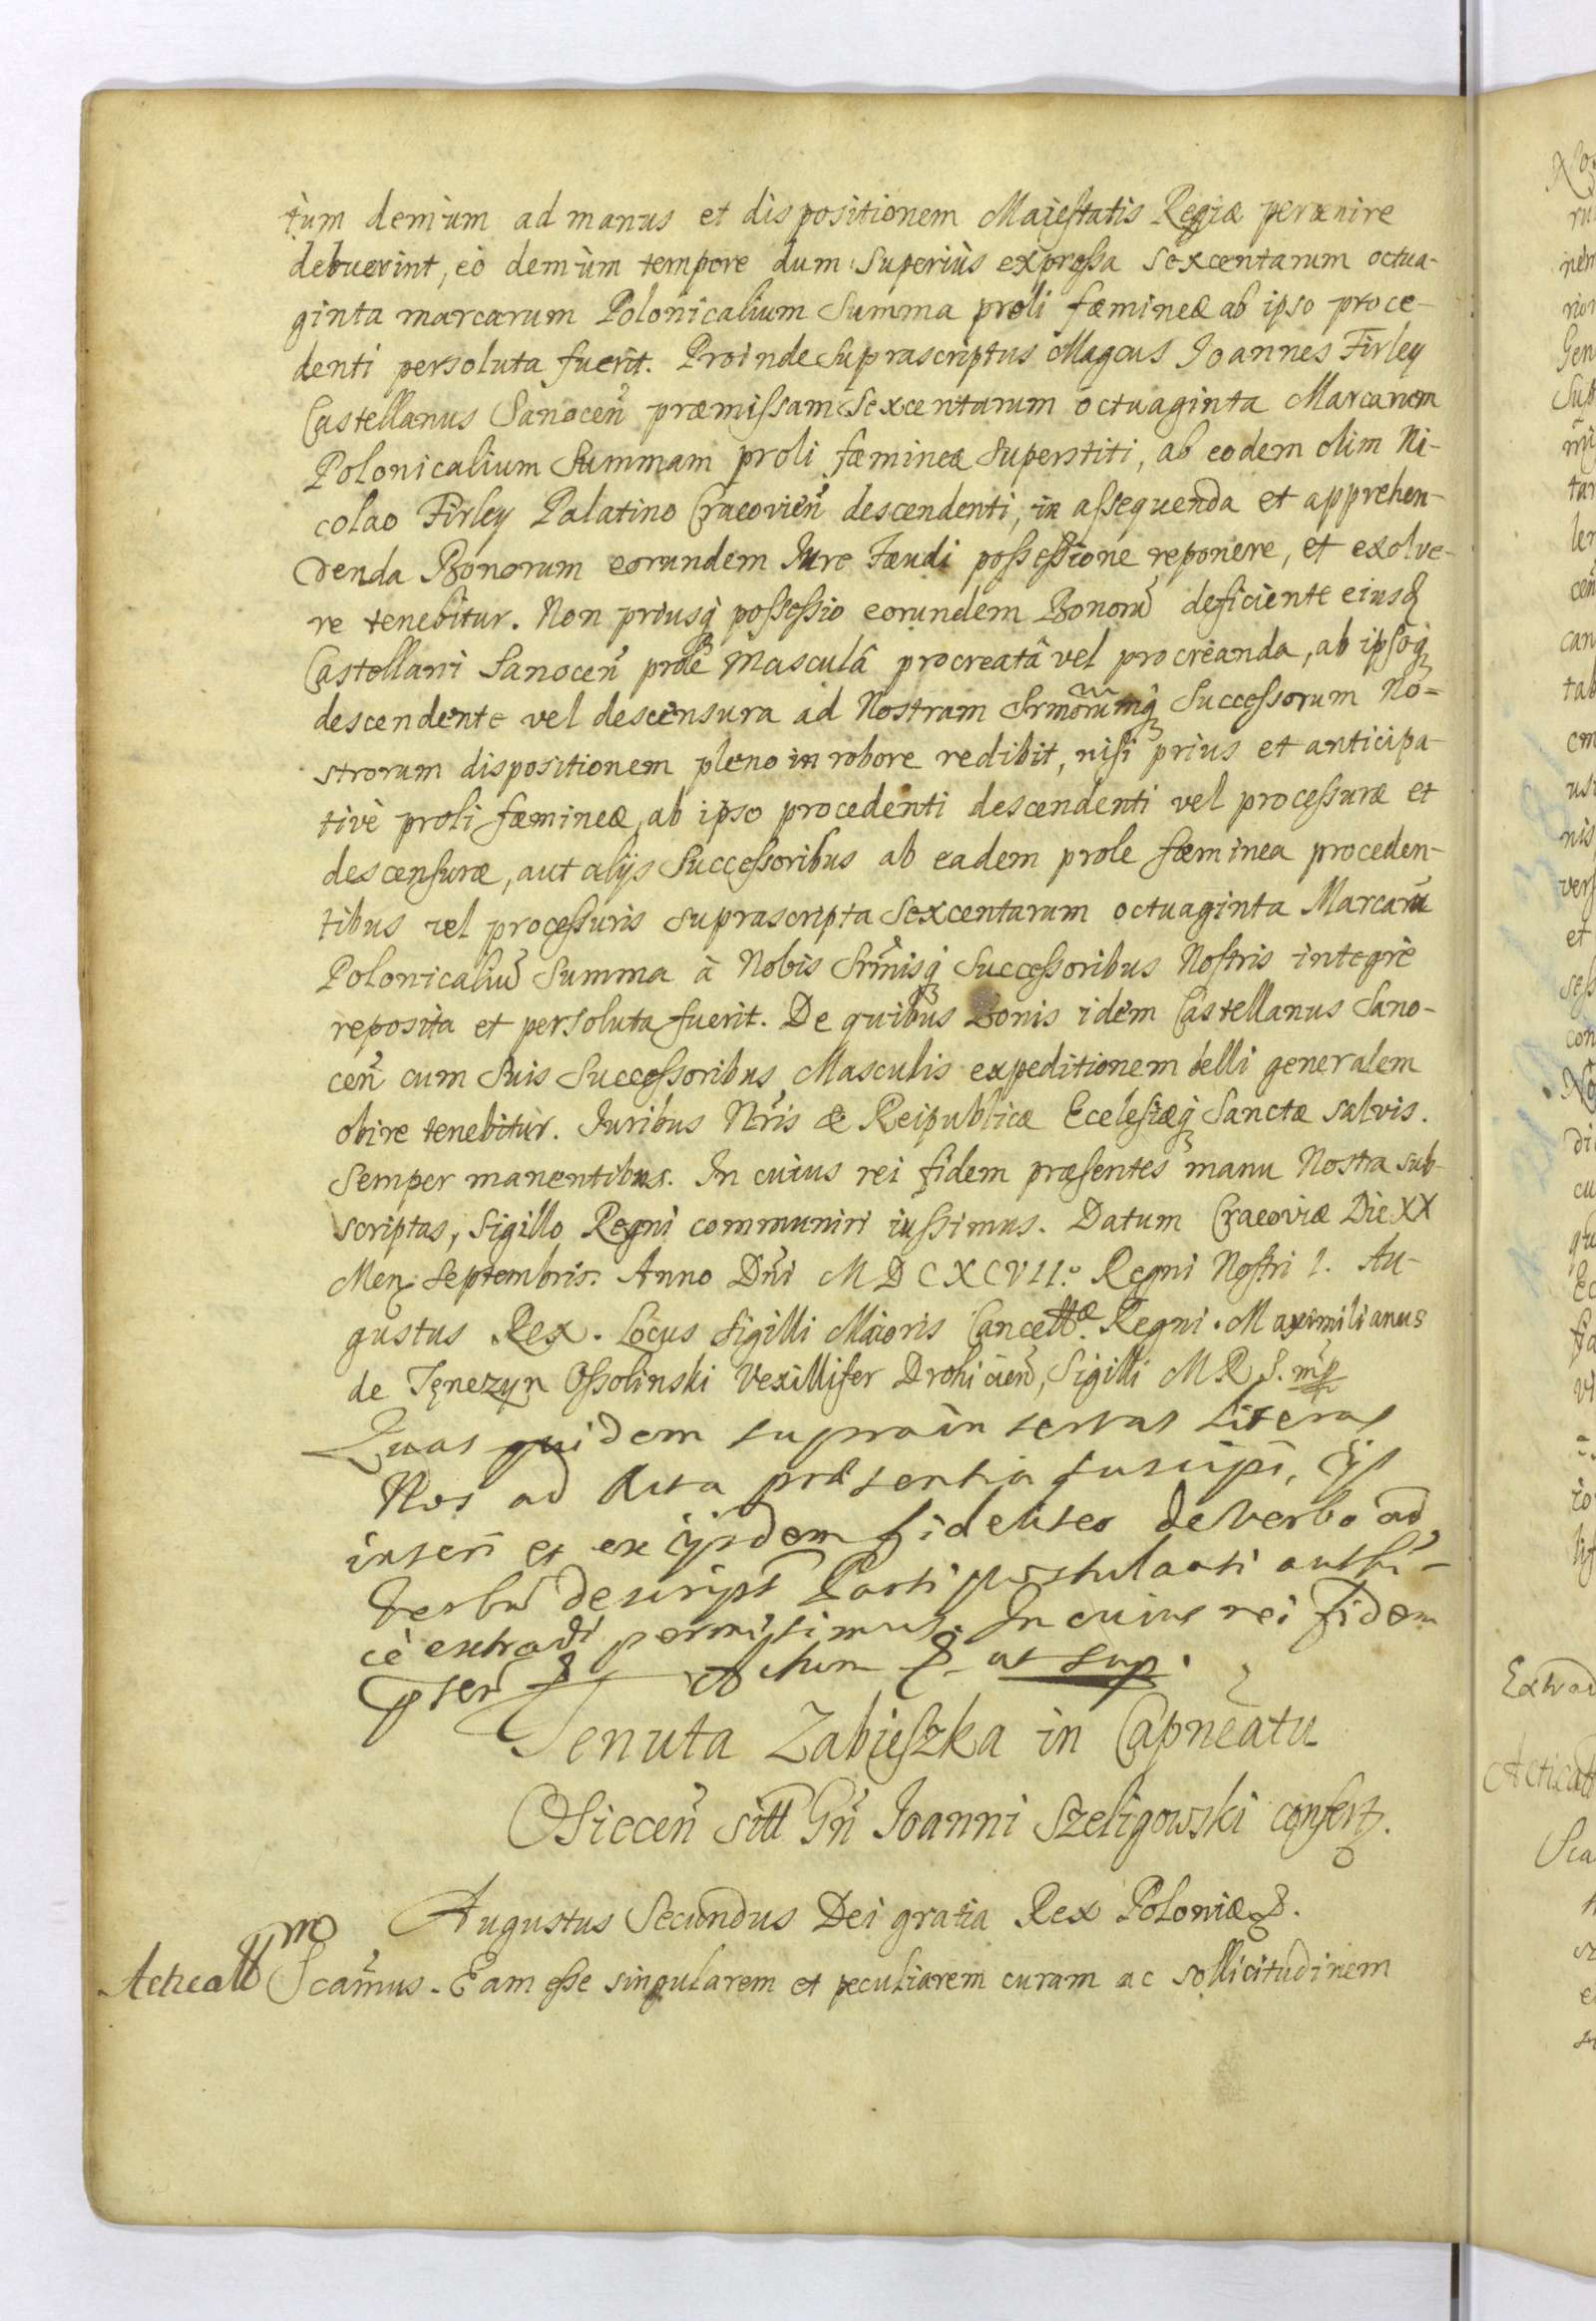 tum demum ad manus et dispositionem Maiestatis Regiæ pervenire
debuerint, eò demùm tempore dum superiùs expressa sexcentarum octua-
ginta marcarum Polonicalium summa proli fæmineæ ab ipso proce-
denti persoluta fuerit. Proinde suprascriptus Magcus Joannes Firley
Castellanus Sanocen̄ præmissam sexcentarum octuaginta Marcarum
Polonicalium summam proli fæmineæ superstiti, ab eodem olim Ni-
colao Firley Palatino Cracovien̄ descendenti, in assequenda et apprehen-
denda Bonorum eorundem Jure Fæudi possessione reponere, et exolve-
re tenebitur. Non priusq possessio eorundem Bonorū deficiente eiusd
Castellani Sanocen̄ prole Masculâ procreatâ vel procreanda, ab ipsoq
descendente vel descensura ad Nostram Srmorumq Successorum No=
strorum dispositionem pleno in robore redibit, nisi prius et anticipa-
tivè proli fæmineæ, ab ipso procedenti descendenti vel processuræ et
descensuræ, aut alijs Successoribus ab eadem prole fæminea proceden-
tibus vel processuris suprascripta sexcentarum octuaginta Marcarū
Polonicaliū summa à Nobis Srmisq Successoribus Nostris integrè
reposita et persoluta fuerit. De quibus Bonis idem Castellanus Sano-
cen̄ cum suis Successoribus Masculis expeditionem belli generalem
obire tenebitur. Juribus Nris & Reipublicæ Ecclesiæq Sanctæ salvis.
semper manentibus. In cuius rei fidem præsentes manu Nostra sub-
scriptas, sigillo Regni communiri iussimus. Datum Cracoviæ Die XX
Men: Septembris. Anno Dn̄i M D C X C V I I.o Regni Nostri I. Au-
gustus Rex. Locus sigilli Maioris Cancellæ. Regni. Maximilianus
de Tęnczyn Ossolinski Vexillifer Drohicien̄, Sigilli M R S. mp
Quas quidem supra insertas literas
Nos ad Acta præsentia suscipi, ijs
inseri et ex ijsdem fideliter de verbo ad
verbū descript Parti postulanti authē-
cè extradi permisimus. In cuius rei fidem
pser & Actum & ut sup.
Tenuta Zabieszka in Capneatu
Osiecen̄ sitt Gn̄ Joanni Szeligowski confert.
Augustus Secundus Dei gratia Rex Poloniæ &.
Acticatt Scamus. Eam esse singularem et peculiarem curam ac sollicitudinem